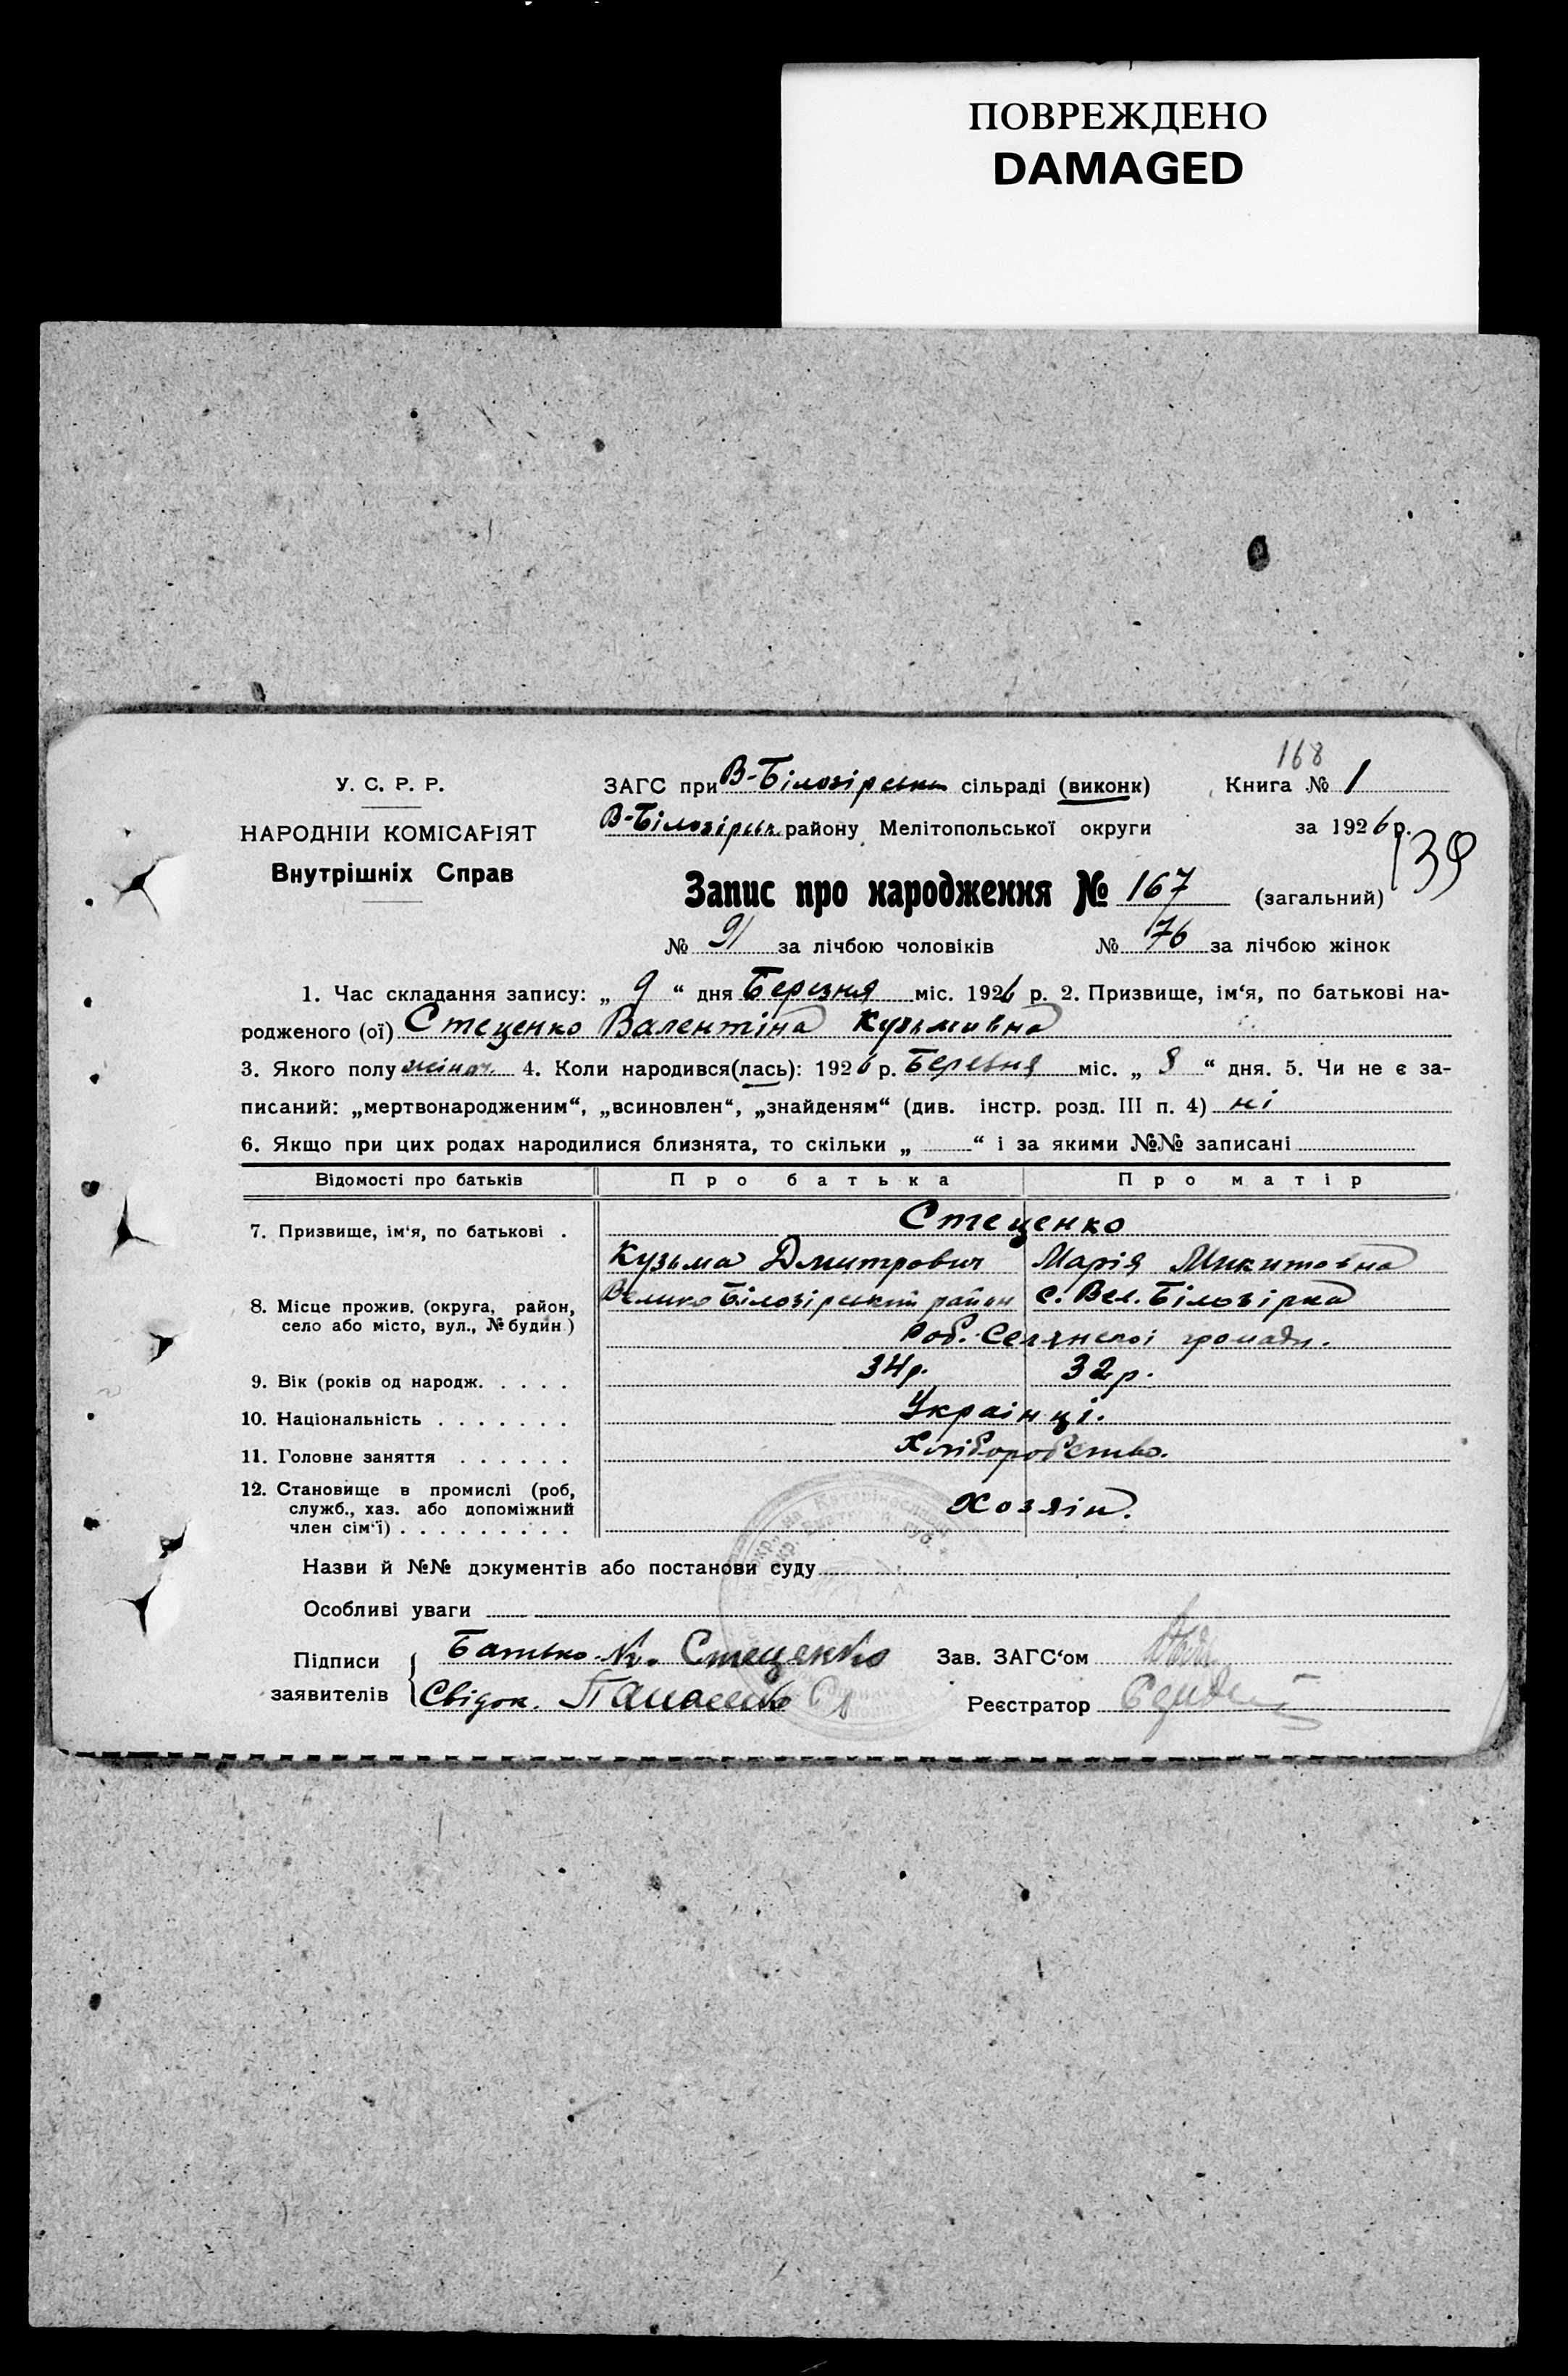 ПОВРЕЖДЕНО
DAMAGED
168
У. С. Р. Р.
ЗАГС при В-Білозірськ сільраді (виконк)
Книга № 1
НАРОДНІЙ КОМІСАРІЯТ
В-Білозірськ району Мелітопольської округи
за 1926 р.
139
Внутрішніх Справ
Запис про народження № 167 (загальний)
№ 91 за лічбою чоловіків № 76 за лічбою жінок
1. Час складання запису: „ 9 “ дня Березня міс. 1926 р. 2. Призвище, ім‘я, по батькові на-
родженого (ої) Стеценко Валентіна Кузьмивна
3. Якого полу жіноч. 4. Коли народився(лась): 1926 р. Березня міс. „ 8 “ дня. 5. Чи не є за-
писаний: „мертвонародженим“, „всиновлен“, „знайденям“ (див. інстр. розд. III п. 4) ні
6. Якщо при цих родах народилися близнята, то скільки „ “ і за якими №№ записані
Відомості про батьків Про батька Про матір
Стеценко
7. Призвище, ім‘я, по батькові .
Кузьма Дмитрович Марія Микитовна
Велико Білозірський район с. Вел. Білозірка
8. Місце прожив. (округа, район,
село або місто, вул., № будин)
Роб. Селянської громади.
9. Вік (років од народж. . . . . 34 р. 32 р.
10. Національність . . . . . . . Українці.
11. Головне заняття . . . . . . Хліборобство.
12. Становище в промислі (роб,
служб., хаз. або допоміжний
член сім‘ї) . . . . . . . . . Хозяін.
Назви й №№ документів або постанови суду
Особливі уваги
Підписи Батько К. Стеценко Зав. ЗАГС‘ом
заявителів Свідок. Панасенко Реєстратор